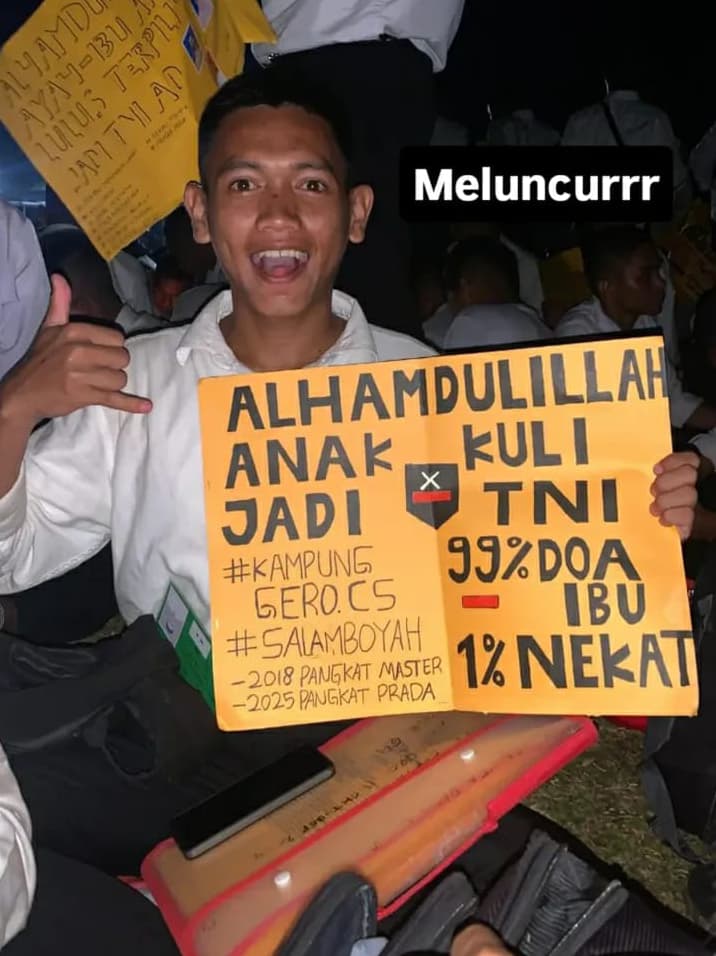 ALHAMDU
AYAH-IBU A
LULUS TERPILI
JADI TNI AD
Meluncurrr
ALHAMDULILLAH
ANAK KULI
JADI TNI
#KAMPUNG
GERO.CS
#SALAMBOYAH
-2018 PANGKAT MASTER
-2025 PANGKAT PRADA
99% DOA
IBU
1% NEKAT